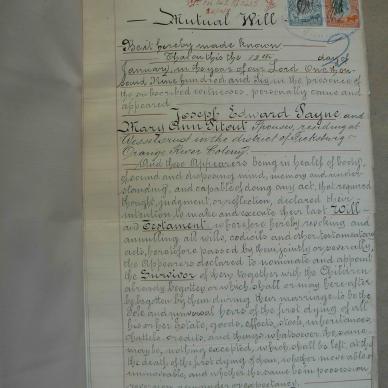 Mutual Will
Be it hereby made known
That on this the 12th day of
January, in the year of our Lord One thou-
sand Nine hundred and Six in the presence of
the subscribed witnesses, personally came and
appeared
Joseph Edward Payne and
Mary Ann Pitout Spouses, residing at
in the district of Ficksburg
Orange River Colony
And these Appearers being in health of body,
of sound and disposing mind, memory and under-
standing, and capable of doing any act, that required
thought, judgment, or reflection, declared their
intention to make and execute their last Will
and Testament, wherefore hereby revoking and
annulling all wills, codicils and other testamentary
acts, heretofore passed by them jointly or severally,
the Appearers declared to nominate and appoint
the Survivor of them together with the Children
already begotten or which shall or may hereafter
be begotten by them during their marriage to be the
sole and universal heirs of the first dying of all
his or her Estate, goods, effects, stock, inheritances,
chattels, credits, and things whatsoever the same
may be, nothing excepted, which shall be left, at the
the death of the first dying of them, whether moveable or
immoveable, and whether the same be in possession
reversion remainder or expectancy.